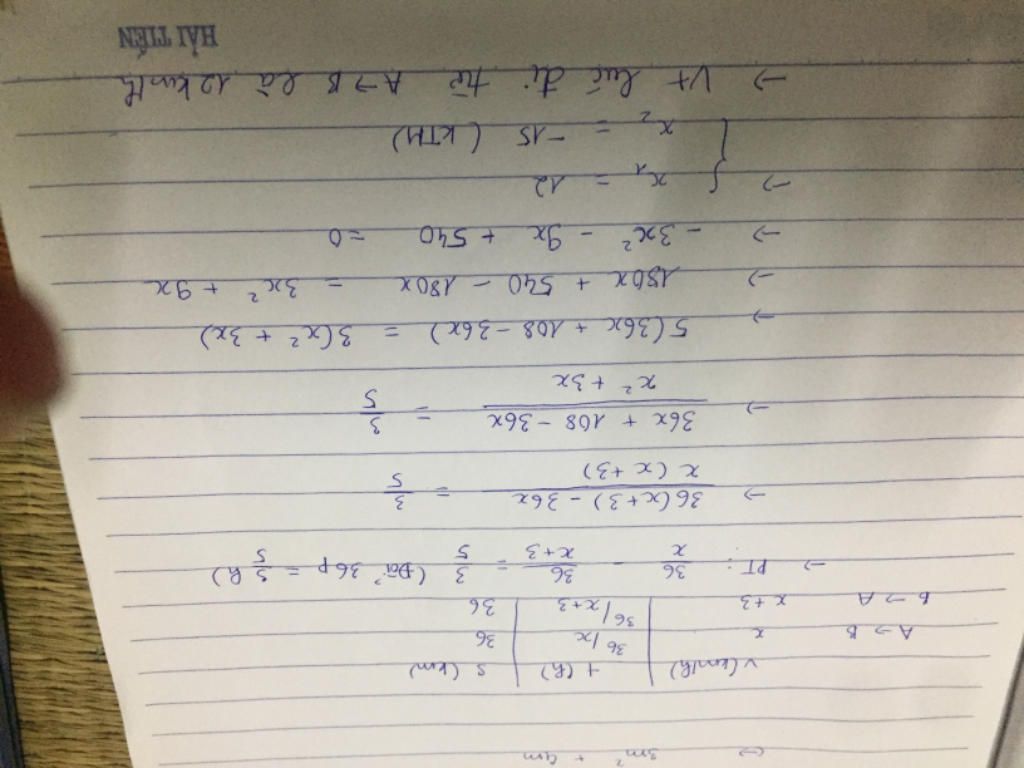 (=) 3m² + 4m
v (km/h) | t (h) | s (km)
A → B x | 36/x | 36
B → A x+3 | 36/x+3 | 36
→ PT: 36/x - 36/x+3 = 3/5 (Đổi 36p = 3/5 h)
→ 36(x+3) - 36x / x(x+3) = 3/5
→ 36x + 108 - 36x / x² + 3x = 3/5
→ 5(36x + 108 - 36x) = 3(x² + 3x)
→ 180x + 540 - 180x = 3x² + 9x
→ - 3x² - 9x + 540 = 0
→ { x₁ = 12
x₂ = -15 (KTM)
→ Vt lúc đi từ A → B là 12 km/h
HẢI TIẾN